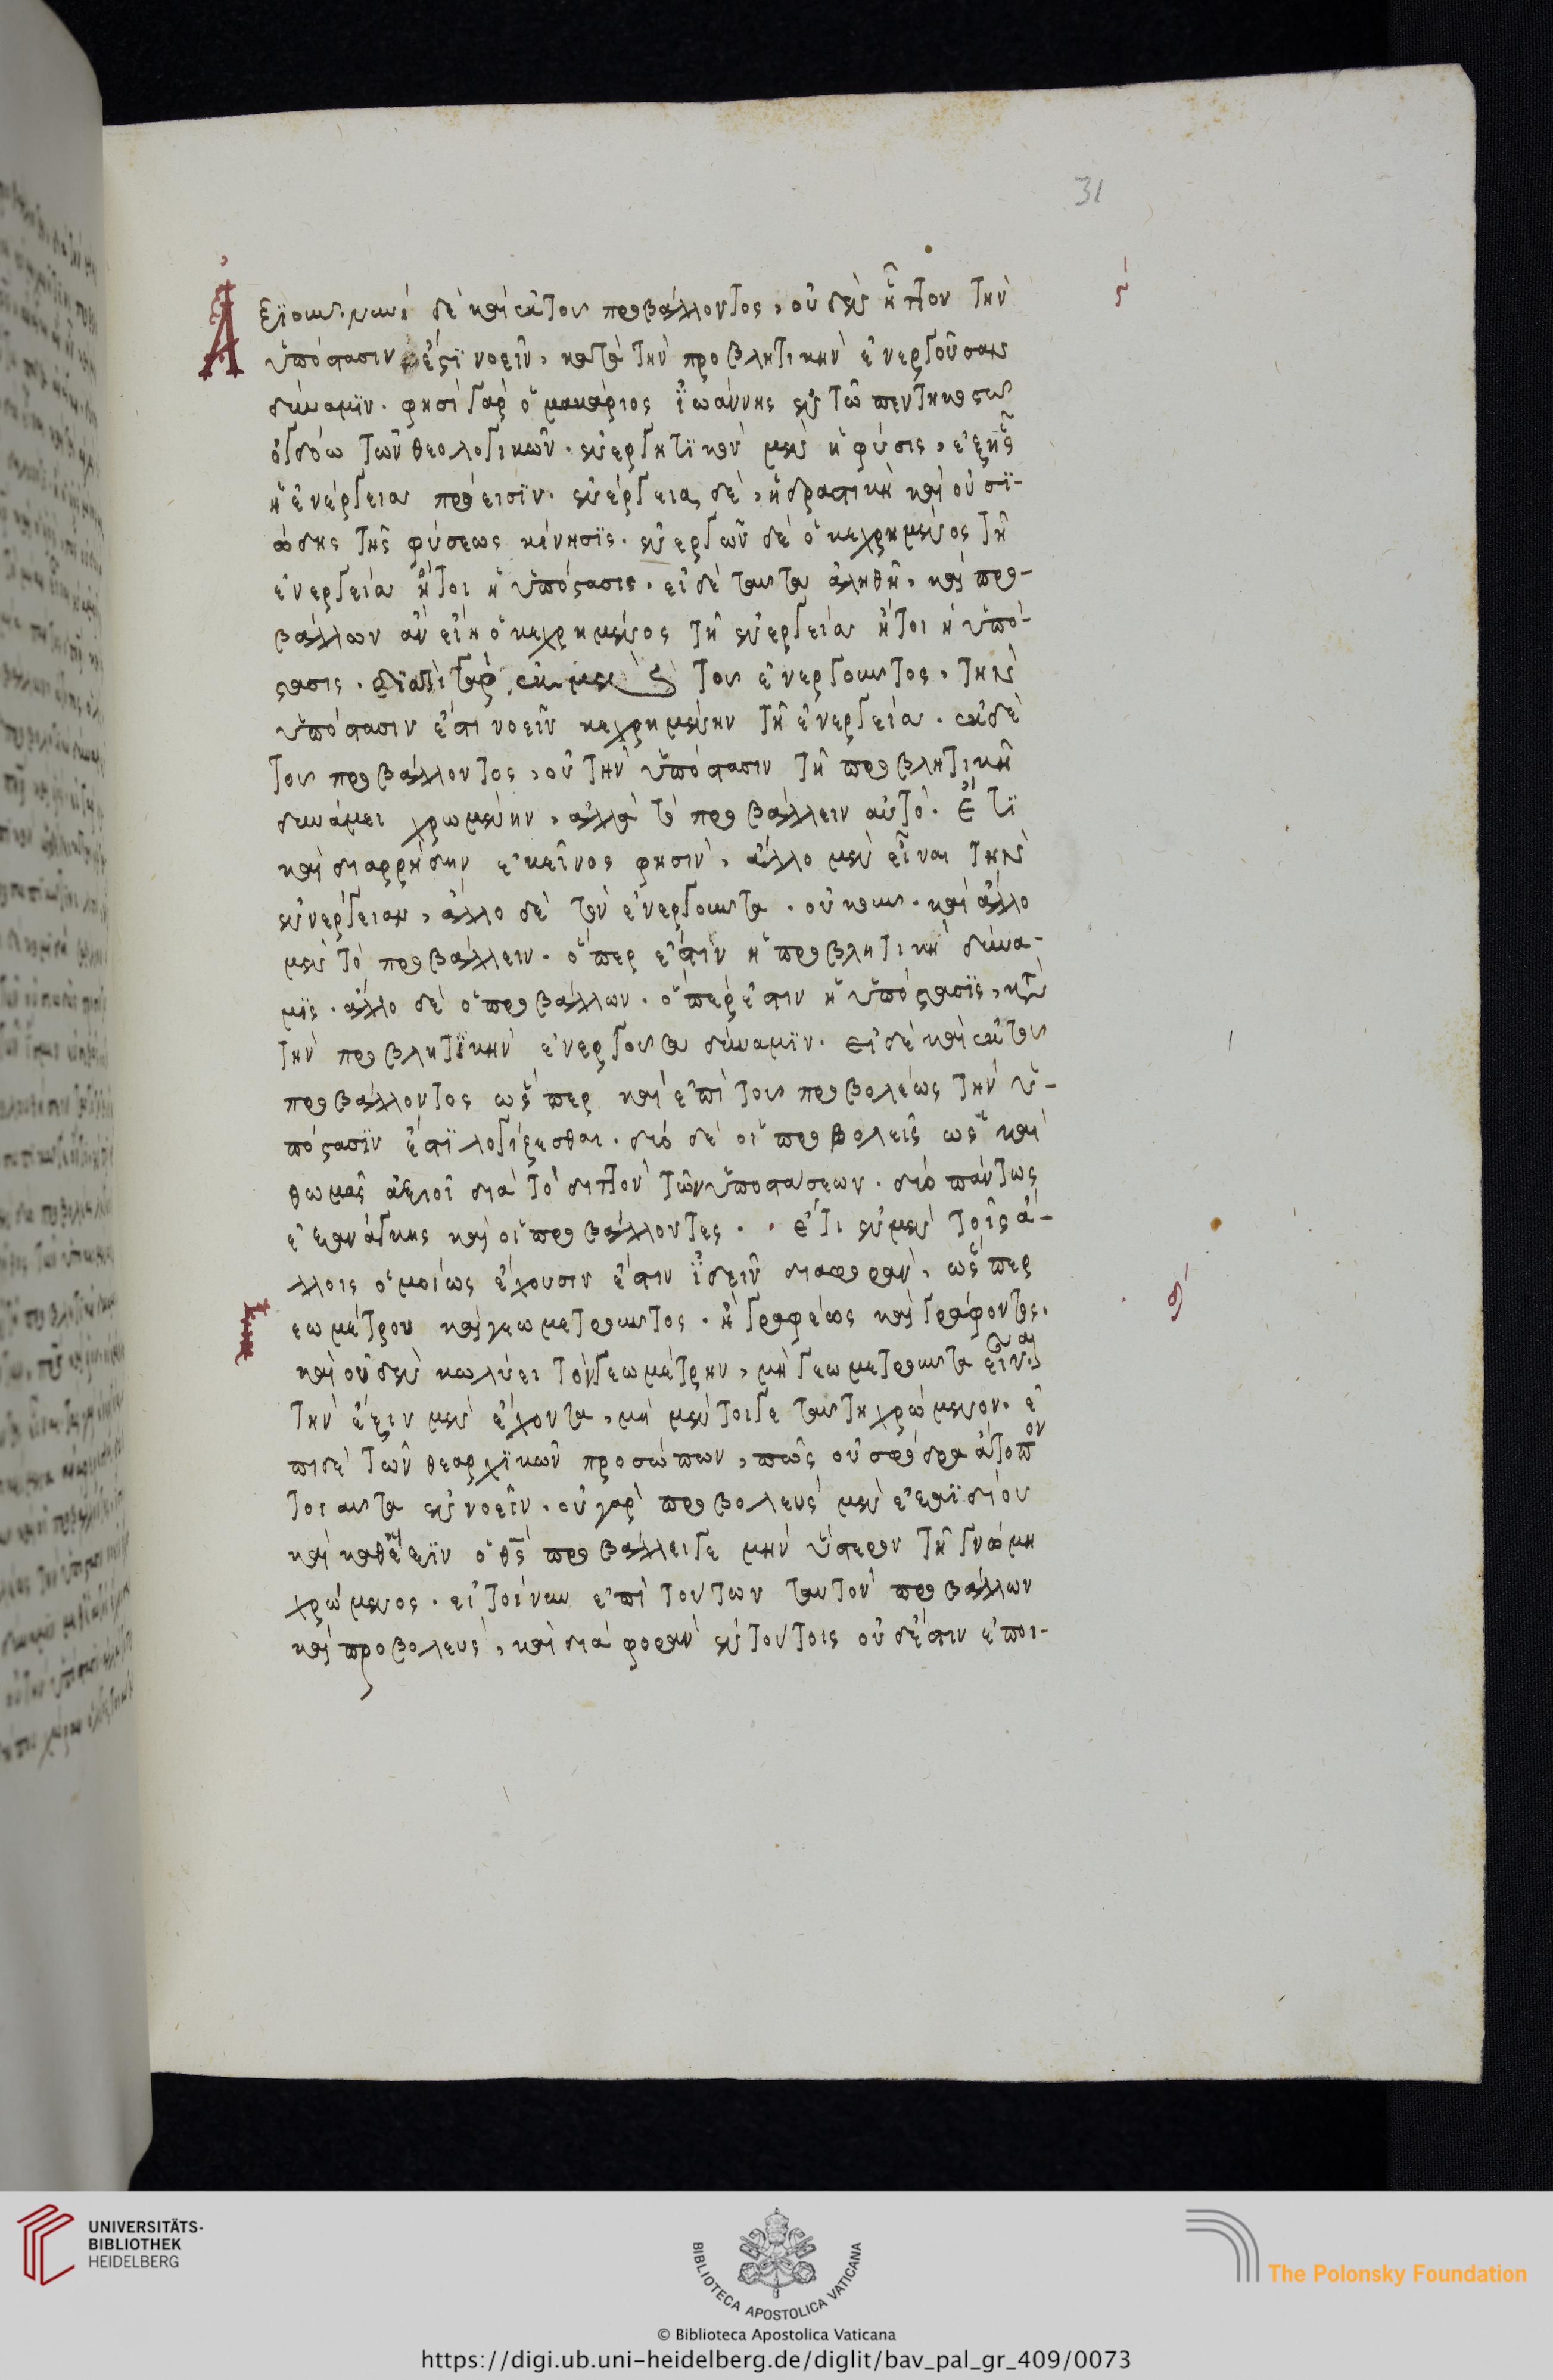 31
Ἀξιουμεν δὲ καὶ ἐκ τοῦ προβάλλοντος, οὐδὲν ἧττον τὴν
ὑπόστασιν ἔστι νοεῖν, κατὰ τὴν προβλητικὴν ἐνεργοῦσαν
δύναμιν. φησὶ γὰρ ὁ μακάριος Ἰωάννης ἐν τῶ πεντηκοστῶ
ὀγδόω τῶν θεολογικῶν. ἐνεργητικὸν μὲν ἡ φύσις, ἐξ ἧς
ἡ ἐνέργεια πρόεισιν. ἐνέργεια δὲ, ἡ δραστικὴ καὶ οὐσι-
ώδης τῆς φύσεως κίνησις. ἐνεργῶν δὲ ὁ κεχρημένος τῆ
ἐνεργεία ἤτοι ἡ ὑπόστασις. εἰ δὲ ταῦτα ἀληθῆ, καὶ προ-
βάλλων ἂν εἴη ὁ κεχρημένος τῆ ἐνεργεία ἤτοι ἡ ὑπό-
στασις. διατί γὰρ ἐκ μὲν τοῦ ἐνεργοῦντος, τὴν
ὑπόστασιν ἔστι νοεῖν κεχρημένην τῆ ἐνεργεία. ἐκ δὲ
τοῦ προβάλλοντος, οὐ τὴν ὑπόστασιν τῆ προβλητικῆ
δυνάμει χρωμένην, ἀλλὰ τὸ προβάλλειν αὐτό. Ἔτι
καὶ διαρρήδην ἐκεῖνος φησὶν, ἄλλο μὲν εἶναι τὴν
ἐνέργειαν, ἄλλο δὲ τὸν ἐνεργοῦντα. οὐκοῦν καὶ ἄλλο
μὲν τὸ προβάλλειν. ὅπερ ἐστὶν ἡ προβλητικὴ δύνα-
μις. ἄλλο δὲ ὁ προβάλλων. ὅπερ ἐστιν ἡ ὑπόστασις, κατὰ
τὴν προβλητικὴν ἐνεργοῦσα δύναμιν. εἰ δὲ καὶ ἐκ τοῦ
προβάλλοντος ὥσπερ καὶ ἐπὶ τοῦ προβολέως τὴν ὑ-
πόστασιν ἔστι λογίζεσθαι. δύο δὲ οἱ προβολεῖς ὡς καὶ
θωμᾶς ἀξιοῖ διὰ τὸ διττὸν τῶν ὑποστάσεων. δύο πάντως
ἐξ ἀνάγκης καὶ οἱ προβάλλοντες. ἔτι ἐν μὲν τοῖς ἄ-
λλοις ὁμοίως ἔχουσιν ἔστιν ἰδεῖν διαφορὰν, ὥσπερ
εωμέτρου καὶ γεωμετροῦντος. ἢ γραφέως καὶ γράφοντος.
καὶ οὐδὲν κωλύει τὸν γεωμέτρην, μὴ γεωμετροῦντα εἶναι
τὴν ἕξιν μὲν ἔχοντα, μὴ μέντοιγε ταύτη χρώμενον. ἐ
πὶ δὲ τῶν θεαρχικῶν προσώπων, πῶς οὐ σφόδρα ἄτοπον
τοιαῦτα ἐννοεῖν. οὐ γὰρ προβολεὺς μὲν ἐξ ἀϊδίου
καὶ καθ' ἕξιν ὁ θς προβάλλει γε μὴν ὕστερον τῆ γνώμη
χρώμενος. εἰ τοίνυν ἐπὶ τούτων ταυτὸν προβάλλων
καὶ προβολεὺς, καὶ διαφορὰν ἐν τούτοις οὐδ' ἔστιν ἐποι-
UNIVERSITÄTS-
BIBLIOTHEK
HEIDELBERG
BIBLIOTECA APOSTOLICA VATICANA
The Polonsky Foundation
© Biblioteca Apostolica Vaticana
https://digi.ub.uni-heidelberg.de/diglit/bav_pal_gr_409/0073